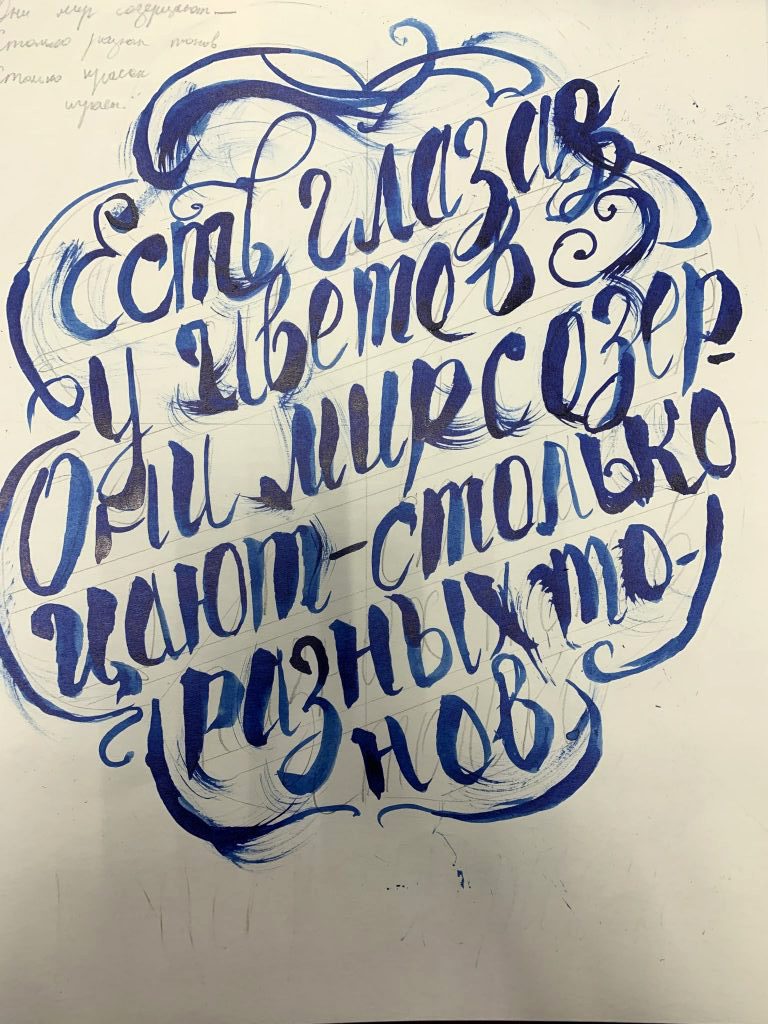 Они мир созерцают—
Столько разных тонов
Столько красок
Есть глаза в
у цветов
Они мир созер-
цают-столько
разных то-
нов